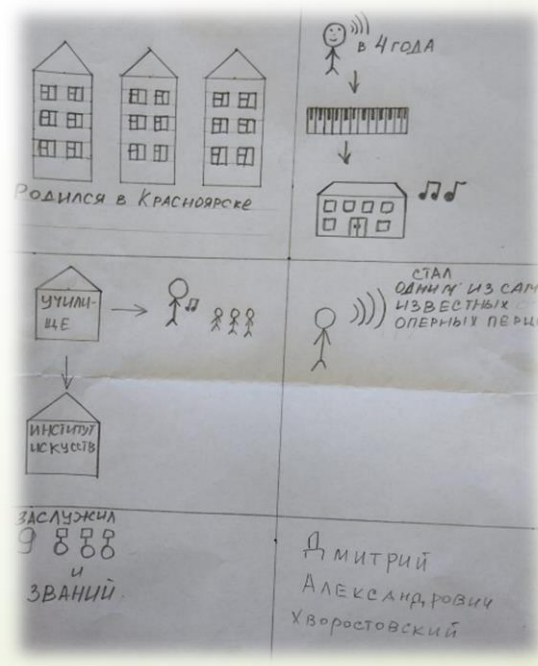 Родился в Красноярске
в 4 года
УЧИЛИ-
ЩЕ
ИНСТИТУТ
ИСКУССТВ
СТАЛ
ОДНИМ ИЗ САМ
ИЗВЕСТНЫХ
ОПЕРНЫХ ПЕВЦ
ЗАСЛУЖИЛ
И
ЗВАНИЙ
Дмитрий
Александрович
Хворостовский